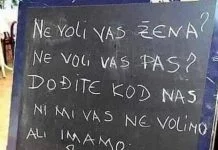 NE VOLI VAS ŽENA?
NE VOLI VAS PAS?
DOĐITE KOD NAS
NI MI VAS NE VOLIMO
ALI IMAMO